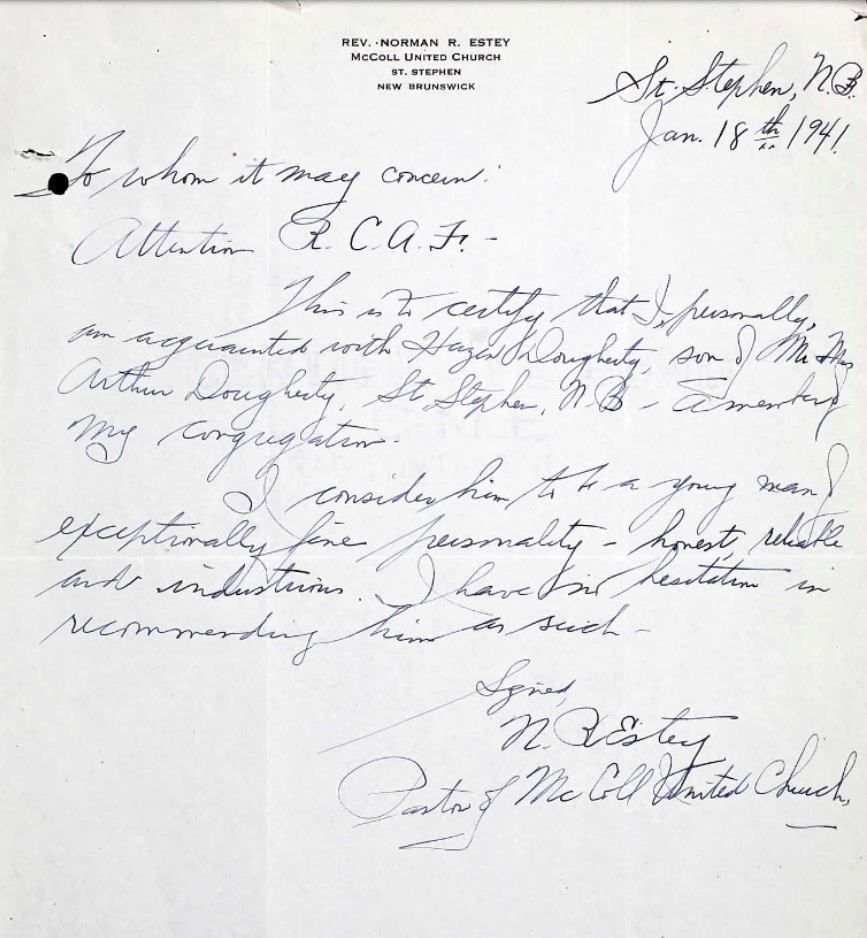 REV. NORMAN R. ESTEY
MCCOLL UNITED CHURCH
ST. STEPHEN
NEW BRUNSWICK
St. Stephen, N.B.
Jan. 18th 1941.
To whom it may concern:
Attention R. C. A. F. -
This is to certify that I, personally,
am acquainted with Hazen Dougherty, son of Mr Mrs
Arthur Dougherty, St. Stephen, N.B - a member of
my congregation.
I consider him to be a young man of
exceptionally fine personality - honest, reliable
and industrious. I have no hesitation in
recommending him as such -
Signed,
N. R. Estey
Pastor of McColl United Church.